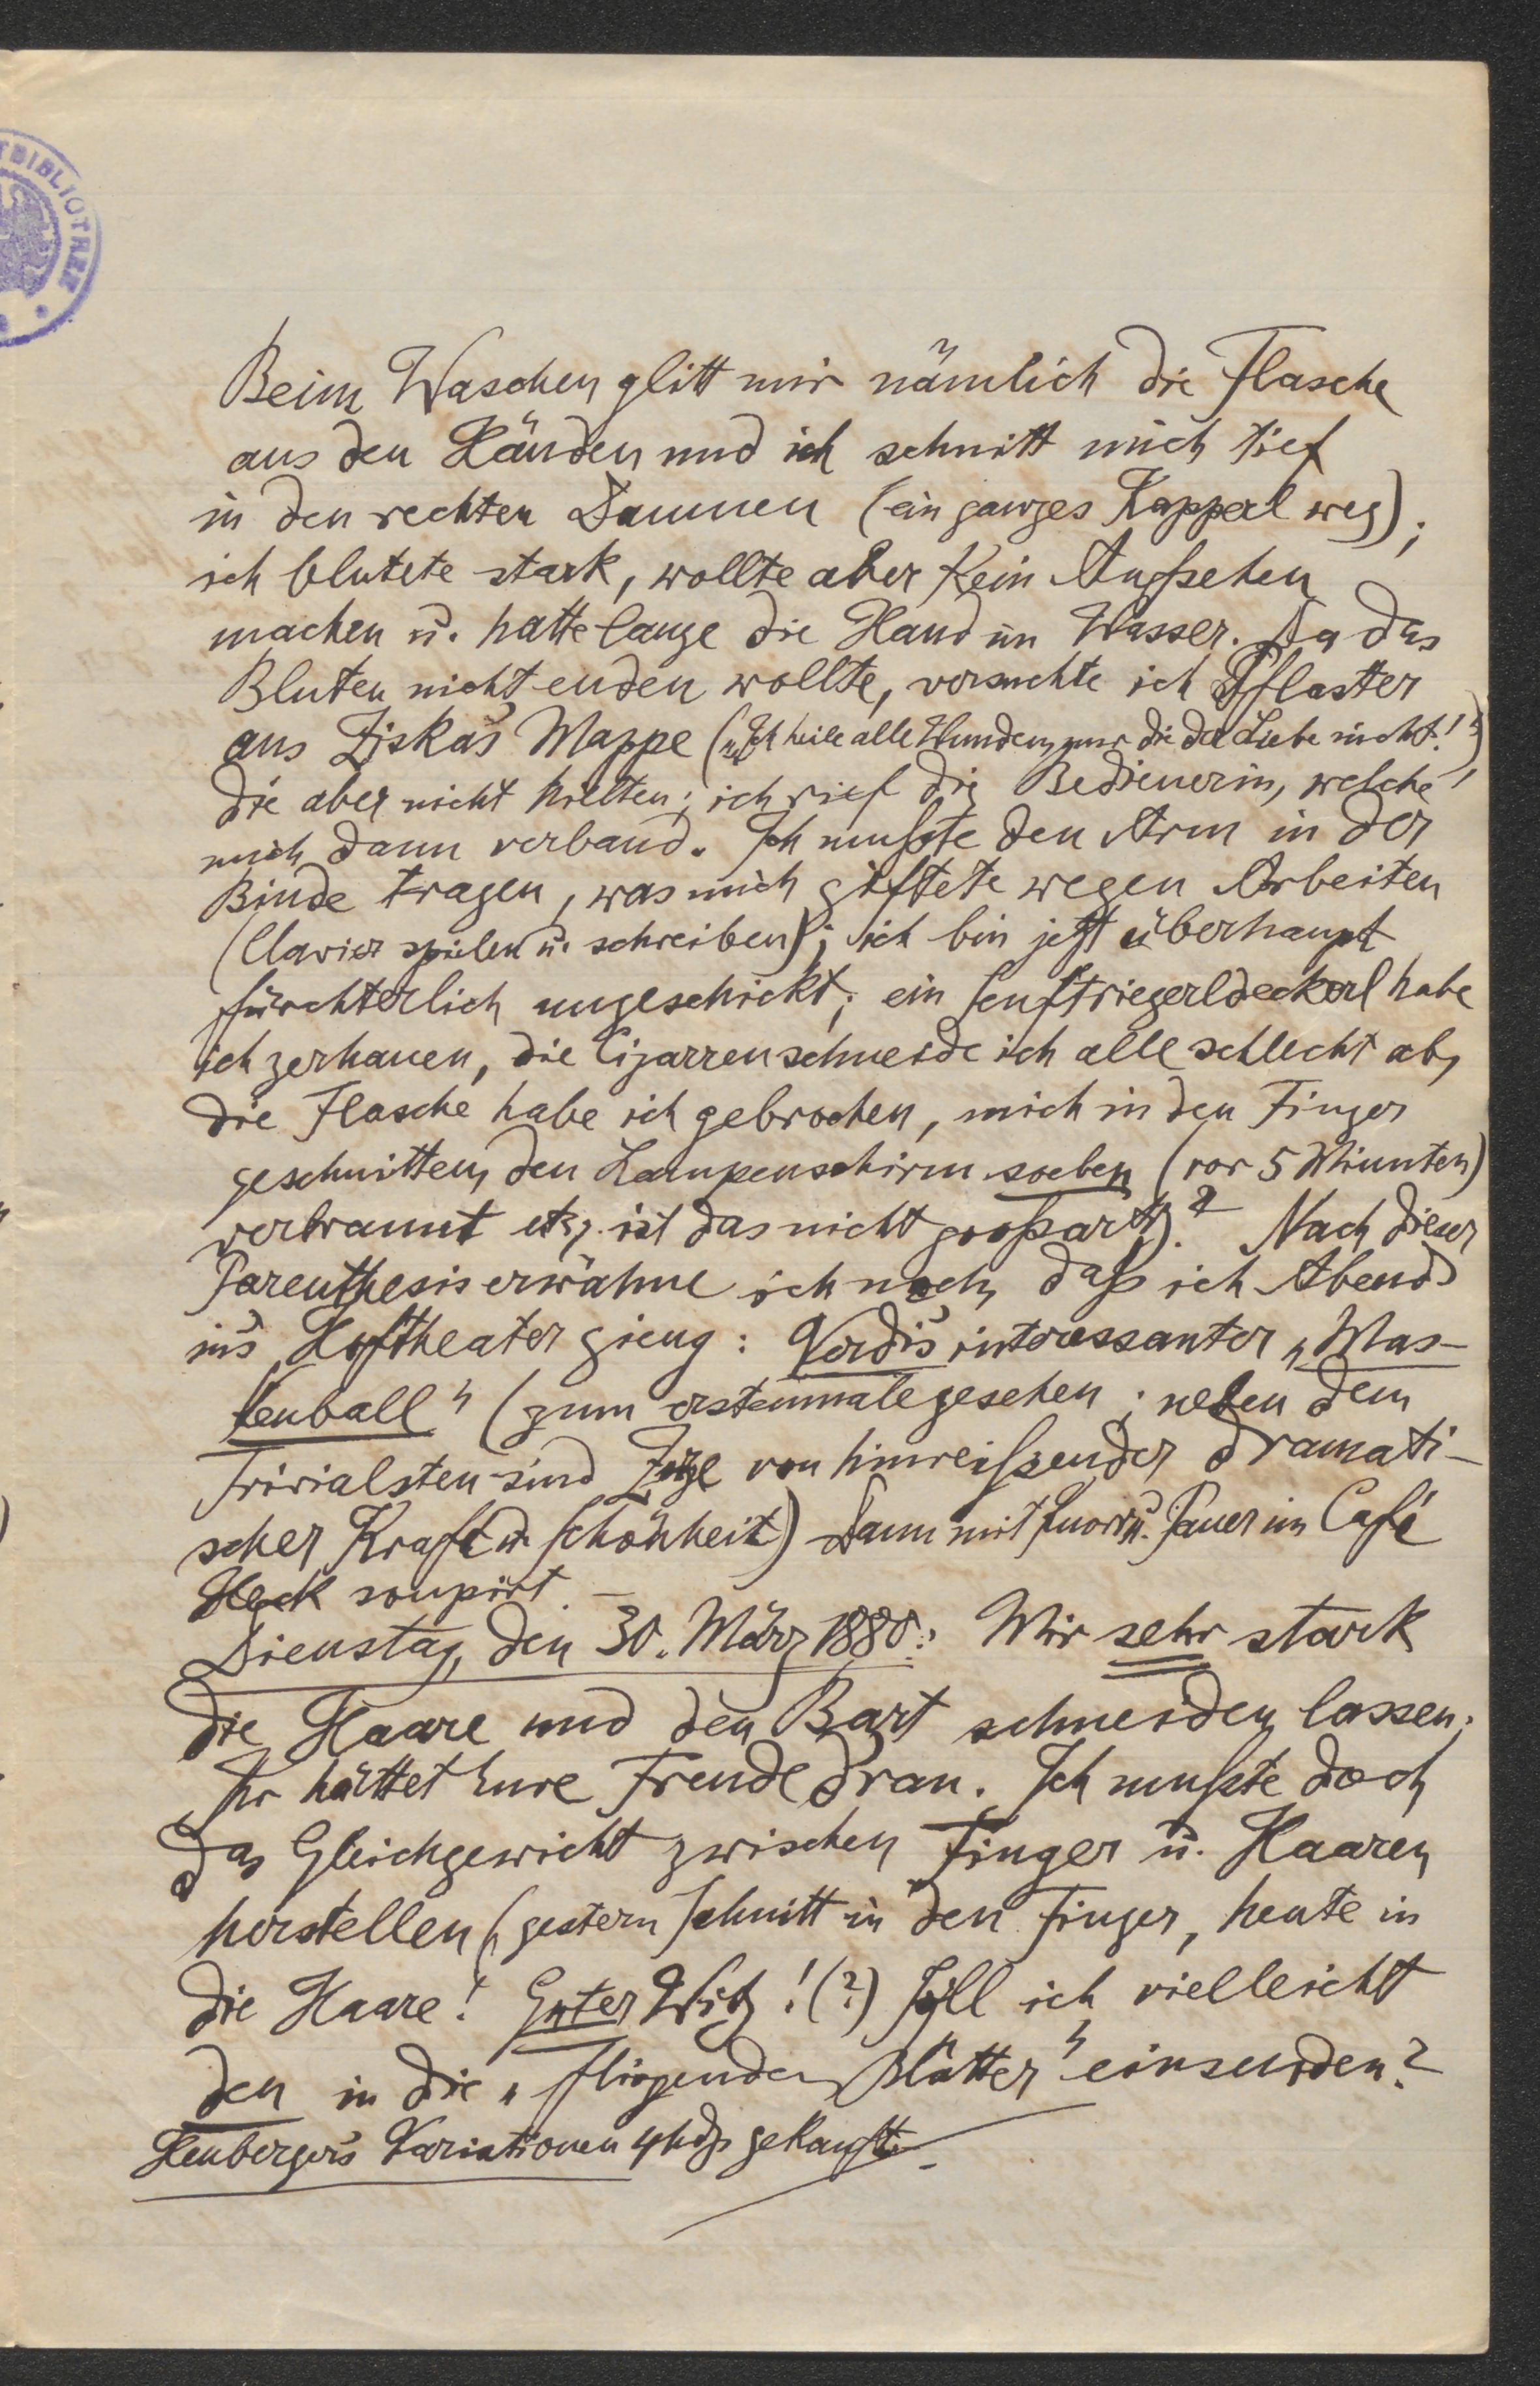 TBIBLIOTHEK
Beim Waschen glitt mir nämlich die Flasche
aus den Händen und ich schnitt mich tief
in den rechten Daumen (ein ganzes Kapperl weg);
ich blutete stark, wollte aber kein Aufsehen
machen u. hatte lange die Hand im Wasser. Da das
Bluten nicht enden wollte, versuchte ich Pflaster
aus Ziska's Mappe („Ich heile alle Wunden, nur die der Liebe nicht!“)
die aber nicht hielten; ich rief die Bedienerin, welche
mich dann verband. Ich mußte den Arm in der
Binde tragen, was mich giftete wegen Arbeiten
(Clavier spielen u. schreiben); ich bin jetzt überhaupt
fürchterlich ungeschickt; ein Senftiegerldeckerl habe
ich zerhauen, die Cigarren schneide ich alle schlecht ab,
die Flasche habe ich gebrochen, mich in den Finger
geschnitten, den Lampenschirm soeben (vor 5 Minuten)
verbrannt etz. ist das nicht großartig? Nach dieser
Parenthesis erwähne ich noch, daß ich Abends
in's Hoftheater gieng: Verdi's interessanter „Mas-
kenball“ (zum erstenmale gesehen; neben dem
Trivialsten sind Züge von hinreißender dramati-
scher Kraft u. Schönheit) Dann mit u. Pauer im Café
Heck soupirt. —
Dienstag, den 30. März 1880: Mir sehr stark
die Haare und den Bart schneiden lassen;
Ihr hättet Eure Freude dran. Ich mußte doch
das Gleichgewicht zwischen Finger u. Haaren
herstellen (gestern Schnitt in den Finger, heute in
die Haare! Guter Witz! (?) Soll ich vielleicht
den in die „fliegenden Blätter“ einsenden?
Heuberger's Variationen 4hdg gekauft.